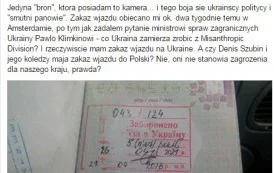 Jedyna "bron", ktora posiadam to kamera... i tego boja sie ukrainscy politycy i
"smutni panowie". Zakaz wjazdu obiecano mi ok. dwa tygodnie temu w
Amsterdamie, po tym jak zadalem pytanie ministrowi spraw zagranicznych
Ukrainy Pawlo Klimkinowi - co Ukraina zamierza zrobic z Misanthropic
Division? I rzeczywiscie mam zakaz wjazdu na Ukraine. A czy Denis Szubin i
jego koledzy maja zakaz wjazdu do Polski? Nie, oni nie stanowia zagrozenia
dla naszego kraju, prawda?
043 / 124
Заборонено
в'їзд в Україну